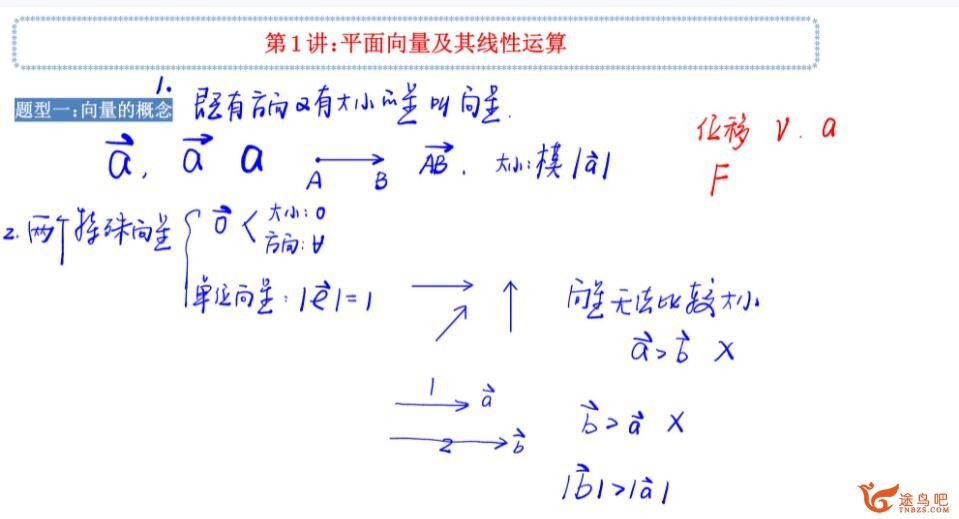 第1讲:平面向量及其线性运算
题型一:向量的概念
1. 既有方向又有大小的量叫向量.
位移 v. a
F
a⃗, a⃗ a A B AB⃗. 大小:模|a⃗|
2.两个特殊向量
0⃗ 大小:0
方向:∀
单位向量:|e⃗|=1
向量无法比较大小.
a⃗>b⃗ X
1 a⃗
2 b⃗
b⃗>a⃗ X
|b⃗|>|a⃗|
途鸟吧
TNBZS.COM